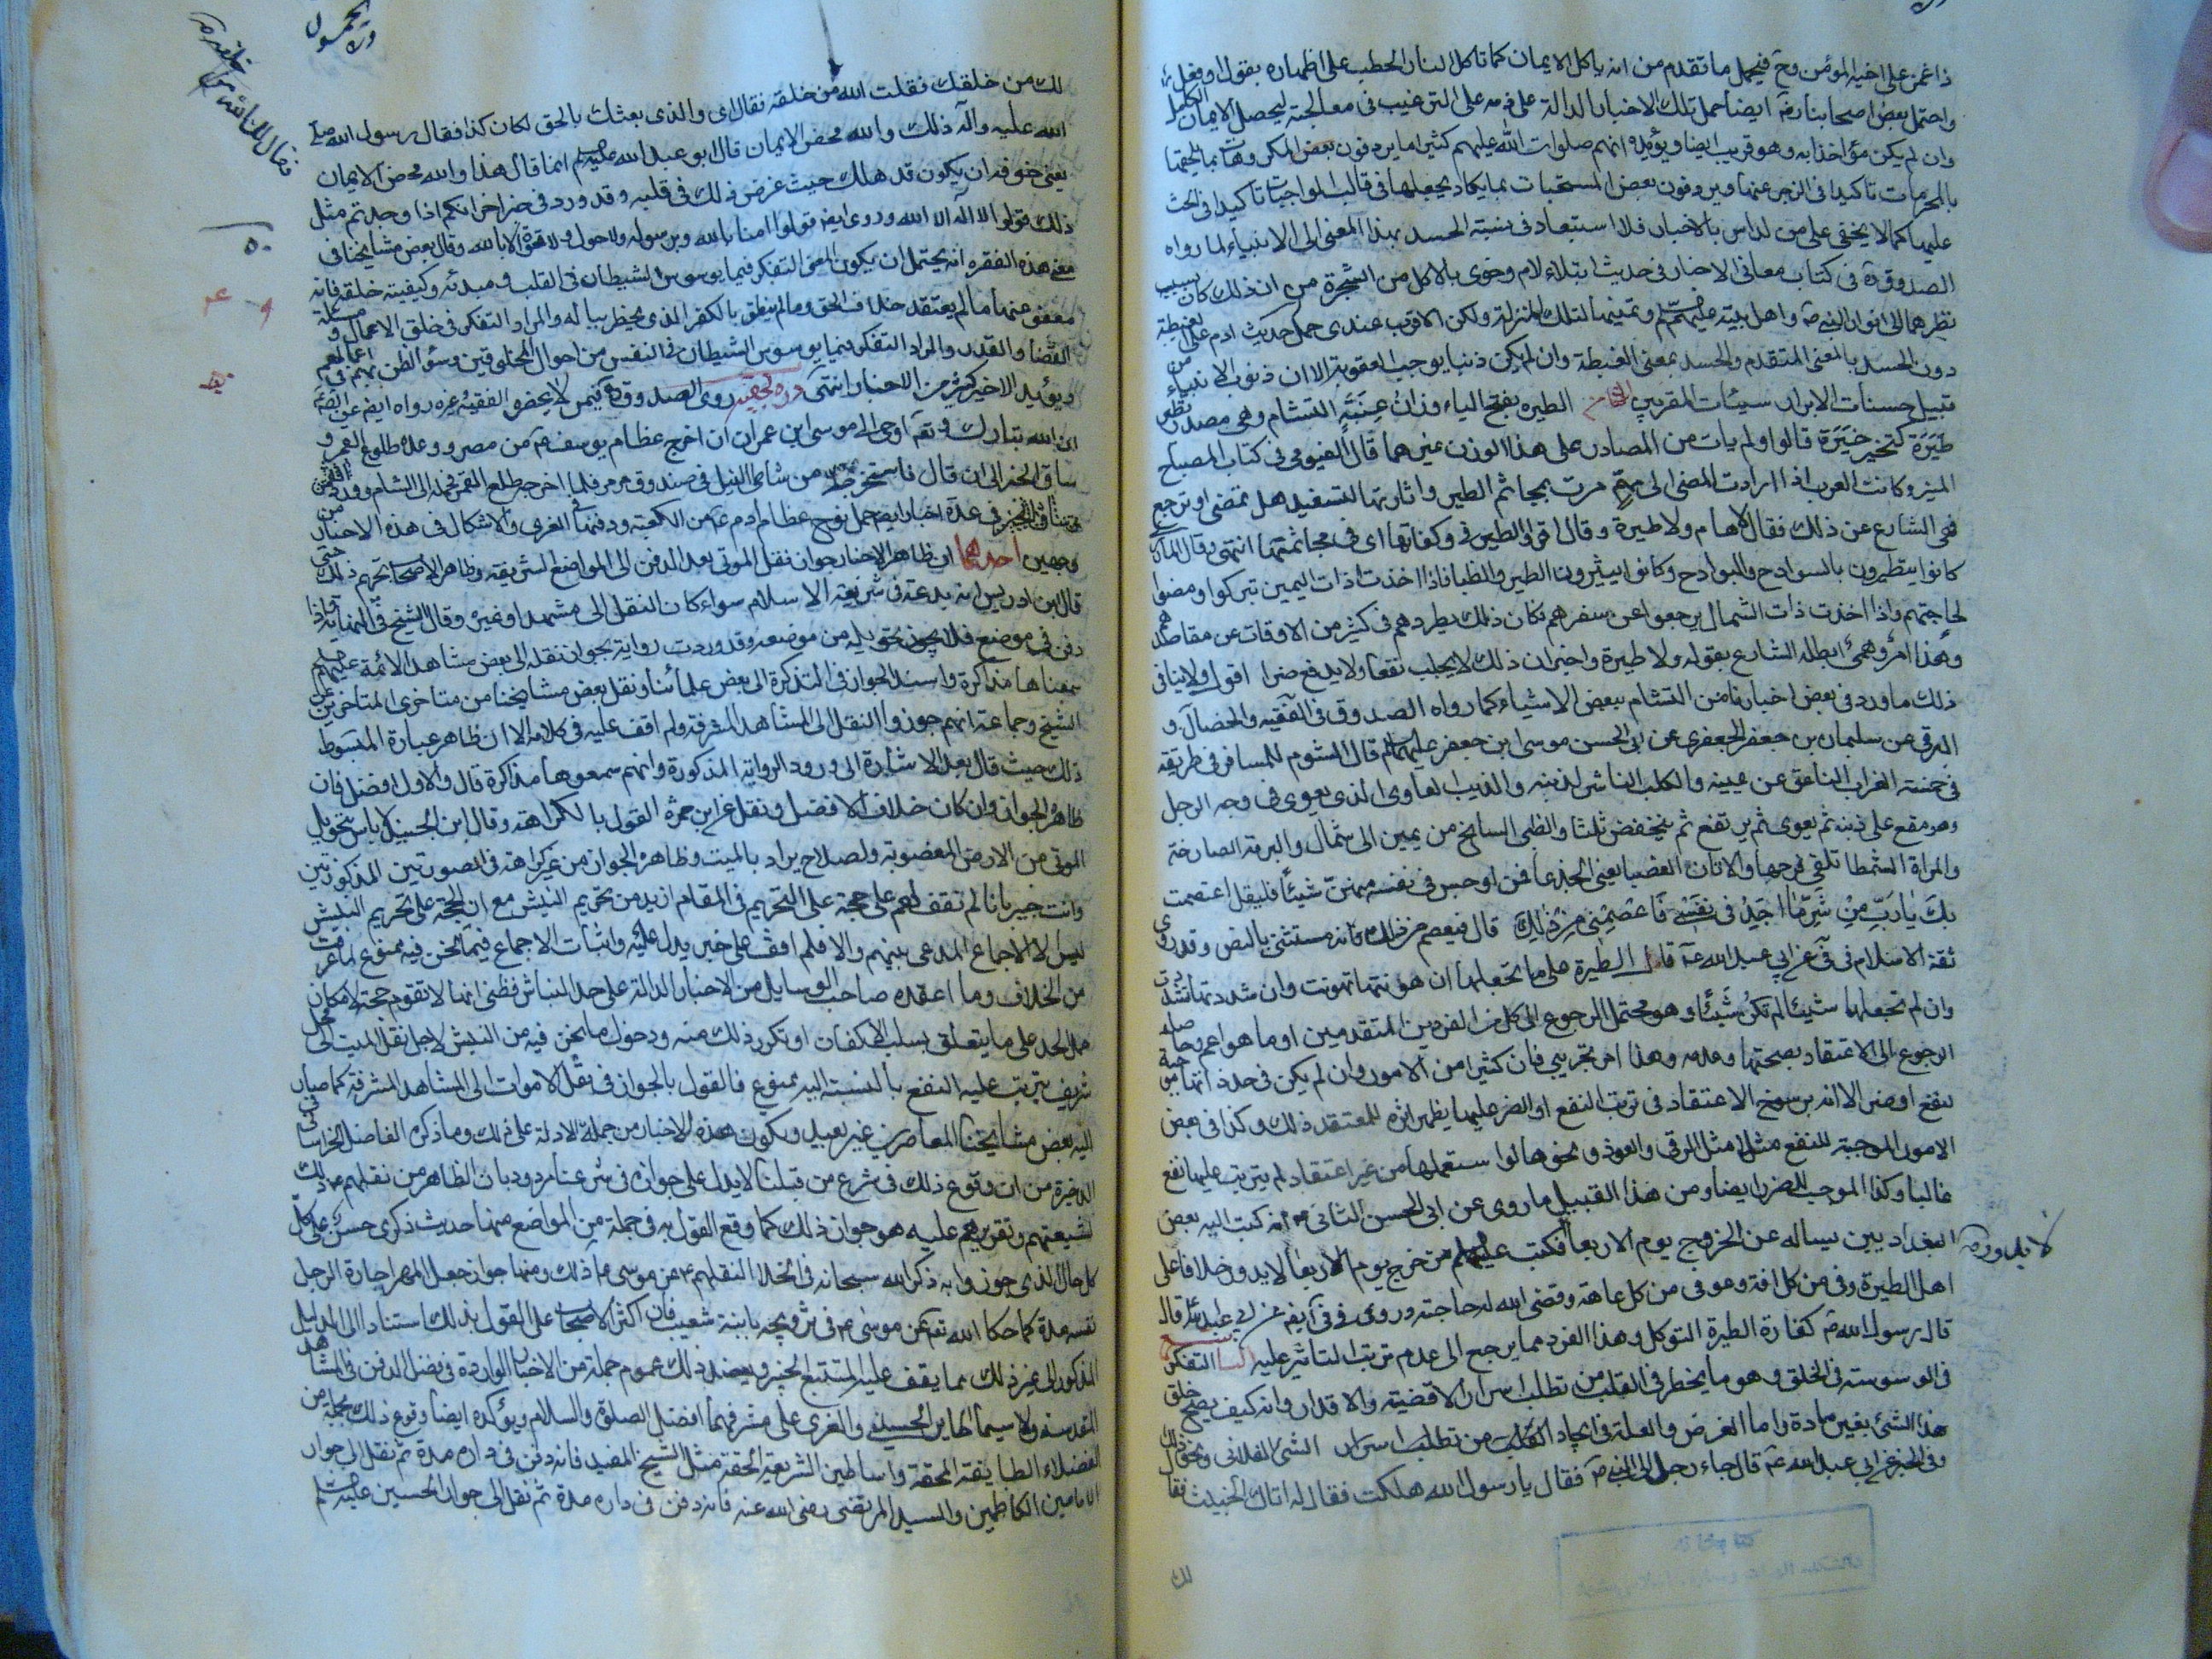 ذا غمز على اخيه المؤمن وح فيحمل ما تقدم من انه ياكل الايمان كما تاكل النار الحطب على اظهاره بقول او فعل
واحتمل بعض اصحابنا ره ايضا حمل تلك الاخبار الدالة على ذمه على الترغيب فى معالجته ليحصل الايمان الكامل
وان لم يكن مؤاخذا به وهو قريب ايضا ويؤيده انهم صلوات الله عليهم كثيرا ما يردفون بعض المكروهات بما يلحقها
بالمحرمات تاكيدا فى الزجر عنها ويردفون بعض المستحبات بما يكاد يجعلها فى قالب الواجبات تاكيدا فى الحث
عليها كما لا يخفى على من لداس بالاخبار فلا استبعاد فى نسبة الحسد بهذا المعنى الى الانبياء لما رواه
الصدوق ره فى كتاب معانى الاخبار فى حديث ابتلاء ادم وحوى بالاكل من الشجرة من ان ذلك كان بسبب
نظرهما الى انوار النبى ص واهل بيته عليهم وتمنيهما لتلك المنزلة ولكن الاقرب عندى حمل حديث ادم على الغبطة
دون الحسد بالمعنى المتقدم والحسد بمعنى الغبطة وان لم يكن ذنبا يوجب العقوبة الا ان ذنوب الانبياء من
قبيل حسنات الابرار سيئات المقربين الطيره بفتح الياء وزان عنبة التشام وهى مصدر تطير
طيرة كتخير خيرة قالوا ولم يات من المصادر على هذا الوزن غيرهما قال الفيومى فى كتاب المصباح
المنير وكانت العرب اذا ارادت المضى الى مهم مرت بمجاثم الطير واثارتها لتستفيد هل تمضى او ترجع
فنهى الشارع عن ذلك فقال لا هام ولا طيرة وقال اقروا الطير فى وكناتها اى فى مجاثمها انتهى
كانوا يتطيرون بالسوادح والبوادح وكانوا يثيرون الطير والظبا فاذا اخذت ذات اليمين تبركوا ومضوا
لحاجتهم واذا اخذت ذات الشمال يرجعوا عن سفرهم فكان ذلك يطردهم فى كثير من الاوقات عن مقاصدهم
وهذا امر وهمى ابطله الشارع بقوله ولا طيرة واخبر ان ذلك لا يجلب نفعا ولا يدفع ضرا اقول ولا ينافى
ذلك ما ورد فى بعض اخبارنا من التشام ببعض الاشياء كما رواه الصدوق فى الفقيه والخصال و
البرقى عن سليمان بن جعفر الجعفرى عن ابى الحسن موسى ابن جعفر عليهما قال الشوم للمسافر فى طريقه
فى خمسة الغراب الناعق عن يمينه والكلب الناشر لذنبه والذيب العاوى الذى يعوى فى وجه الرجل
وهو مقع على ذنبه ثم يعوى ثم يرتفع ثم ينخفض ثلثا والظبى السانح من يمين الى شمال والبومة الصارخة
والمراة الشمطا تلقى فرجها والاتان العضبا يعنى الجدعا فمن اوجس فى نفسه منهن شيئا فليقل اعتصمت
بك يا رب من شر ما اجد فى نفسى فاعصمنى من ذلك قال فيعصم من ذلك فانه مستثنى بالنص وقد روى
ثقة الاسلام فى عن ابى عبد الله ع قال الطيرة على ما تجعلها ان هونتها تهونت وان شددتها تشددت
وان لم تجعلها شيئا لم تكن شيئا وهو محتمل الرجوع الى كل من الفردين المتقدمين او ما هو اعم
الرجوع الى الاعتقاد بصحتها وعدمه وهذا امر تجريبى فان كثيرا من الامور وان لم يكن فى حد ذاتها موجبة
لنفع او ضر الا انه برسوخ الاعتقاد فى ترتب النفع او الضر عليها يظهر اثره للمعتقد ذلك وكذا فى بعض
الامور الموجبة للنفع مثل الرقى والعوذ ونحوها لو استعملها من غير اعتقاد لم يترتب عليها نفع
غالبا وكذا الموجب للضر ايضا ومن هذا القبيل ما روى عن ابى الحسن الثانى ع انه كتب اليه بعض
البغداديين يساله عن الخروج يوم الاربعا فكتب من خرج يوم الاربعا لا يدور خلافا على
لا يدور
اهل الطيرة وقى من كل افة وعوفى من كل عاهة وقضى الله له حاجته وروى فى ايضا عن ابى عبد الله قال
قال رسول الله ص كفارة الطيرة التوكل وهذا الفرد مما يرجع الى عدم ترتب التاثير عليه التفكر
فى الوسوسة فى الخلق وهو ما يخطر فى القلب من تطلب اسرار الاقضية والاقدار وانه كيف يصح خلق
هذا الشئ بغير مادة واما الغرض والعلة فى ايجاد من تطلب اسرار الشئ الفلانى ونحو ذلك
وفى الخبر عن ابى عبد الله ع قال جاء رجل الى النبى ص فقال يا رسول الله هلكت فقال له اتاك الخبيث فقال
لك
لك من خلقك فقلت الله من خلقه فقال اى والذى بعثك بالحق لكان كذا فقال رسول الله صلى
الله عليه وآله ذلك والله محض الايمان قال ابو عبد الله انما قال هذا والله محض الايمان
يعنى خوفه ان يكون قد هلك حيث عرض ذلك فى قلبه وقد ورد فى خبر اخر انكم اذا وجدتم مثل
ذلك قولوا لا اله الا الله وروى ايضا قولوا امنا بالله وبرسوله ولا حول ولا قوة الا بالله وقال بعض مشايخنا فى
معنى هذه الفقره انه يحتمل ان يكون المعنى التفكر فيما يوسوس الشيطان فى القلب فى مبدئه وكيفية خلقه فانه
معفو عنها ما لم يعتقد خلاف الحق وما لم ينطق بالكفر الذى يخطر بباله والمراد التفكر فى خلق الاعمال ومسئلة
القضا والقدر والمراد التفكر فيما يوسوس الشيطان فى النفس من احوال المخلوقين وسؤ الظن بهم فى اعمالهم
ويؤيد الاخير كثير من الاخبار انتهى دره نجفيه روى الصدوق ره فى كتاب من لا يحضره الفقيه وغيره رواه ايضا عن الصادق
ان الله تبارك وتع اوحى الى موسى ابن عمران ان اخرج عظام يوسف ع من مصر ووعده طلوع القمر و
ساق الخبر الى ان قال فاستخرجه من شاطى النيل فى صندوق مرمر فلما اخرجه طلع القمر فحمله الى الشام وورد
فى عدة اخبار ايضا حمل نوح عظام ادم ع من الكعبة ودفنها فى الغرى والاشكال فى هذه الاخبار من
وجهين احدهما ان ظاهر الاخبار جواز نقل الموتى بعد الدفن الى المواضع الشريفة وظاهر الاصحاب تحريم ذلك حتى
قال ابن ادريس انه بدعة فى شريعة الاسلام سواء كان النقل الى مشهد او غيره وقال الشيخ فى النهاية فاذا
دفن فى موضع فلا يجوز تحويله من موضعه وقد وردت رواية بجواز نقله الى بعض مشاهد الائمة عليهم
سمعناها مذاكرة واسند الجواز فى التذكرة الى بعض علمائنا ونقل بعض مشايخنا من متاخرى المتاخرين عن
الشيخ وجماعة انهم جوزوا النقل الى المشاهد المشرفة ولم اقف عليه فى كلامه الا ان ظاهر عبارة المبسوط
ذلك حيث قال بعد الاشارة الى ورود الرواية المذكورة وانهم سمعوها مذاكرة قال والاول افضل فان
ظاهره الجواز وان كان خلاف الافضل ونقل عن ابن حمزة القول بالكراهة وقال ابن الجنيد لا باس بتحويل
الموتى من الارض المغصوبة ولصلاح يراد بالميت وظاهره الجواز من غير كراهة فى الصورتين المذكورتين
وانت خبير بانا لم نقف لهم على حجة على التحريم فى المقام ازيد من تحريم النبش مع ان الحجة على تحريم النبش
ليس الا الاجماع المدعى بينهم والا فلم اقف على خبر يدل عليه واثبات الاجماع فيما نحن فيه ممنوع لما عرفت
من الخلاف وما اعتقده صاحب الوسايل من الاخبار الدالة على حد النباش فظنى انها لا تقوم حجة لامكان
حمل الحد على ما يتعلق بسلب الاكفان او تكرر ذلك منه ودخول ما نحن فيه من النبش لاجل نقل الميت الى محل
شريف يترتب عليه النفع بالنسبة اليه ممنوع فالقول بالجواز فى نقل الاموات الى المشاهد المشرفة كما صار
اليه بعض مشايخنا المعاصرين غير بعيد ويكون هذه الاخبار من جملة الادلة على ذلك وما ذكره الفاضل الخراسانى فى
الذخيرة من ان وقوع ذلك فى شرع من قبلنا لا يدل على جوازه فى شرعنا مردود بان الظاهر من نقلهم ع ذلك
لشيعتهم وتقريرهم عليه هو جواز ذلك كما وقع القول به فى جملة من المواضع منها حديث ذكرى حسن على كل
كل حال الذى جوزوا به ذكر الله سبحانه فى الخلا لنقلهم ع عن موسى ع ذلك ومنها جواز جعل المهر اجارة الرجل
نفسه مدة كما حكاه الله تع عن موسى ع فى تزويجه بابنة شعيب فان اكثر الاصحاب على القول بذلك استنادا الى الدليل
المذكور الى غير ذلك مما يقف عليه المتتبع الخبير ويعضد ذلك عموم جملة من الاخبار الواردة فى فضل الدفن فى المشاهد
المقدسة ولا سيما الحاير الحسينى والغرى على مشرفهما افضل الصلوة والسلام ويؤكده ايضا وقوع ذلك بجملة من
الفضلاء الطايفة المحقة واساطين الشريعة الحقة مثل الشيخ المفيد فانه دفن فى داره مدة ثم نقل الى جوار
الامامين الكاظمين والسيد المرتضى رضى الله عنه فانه دفن فى داره مدة ثم نقل الى جوار الحسين عليه